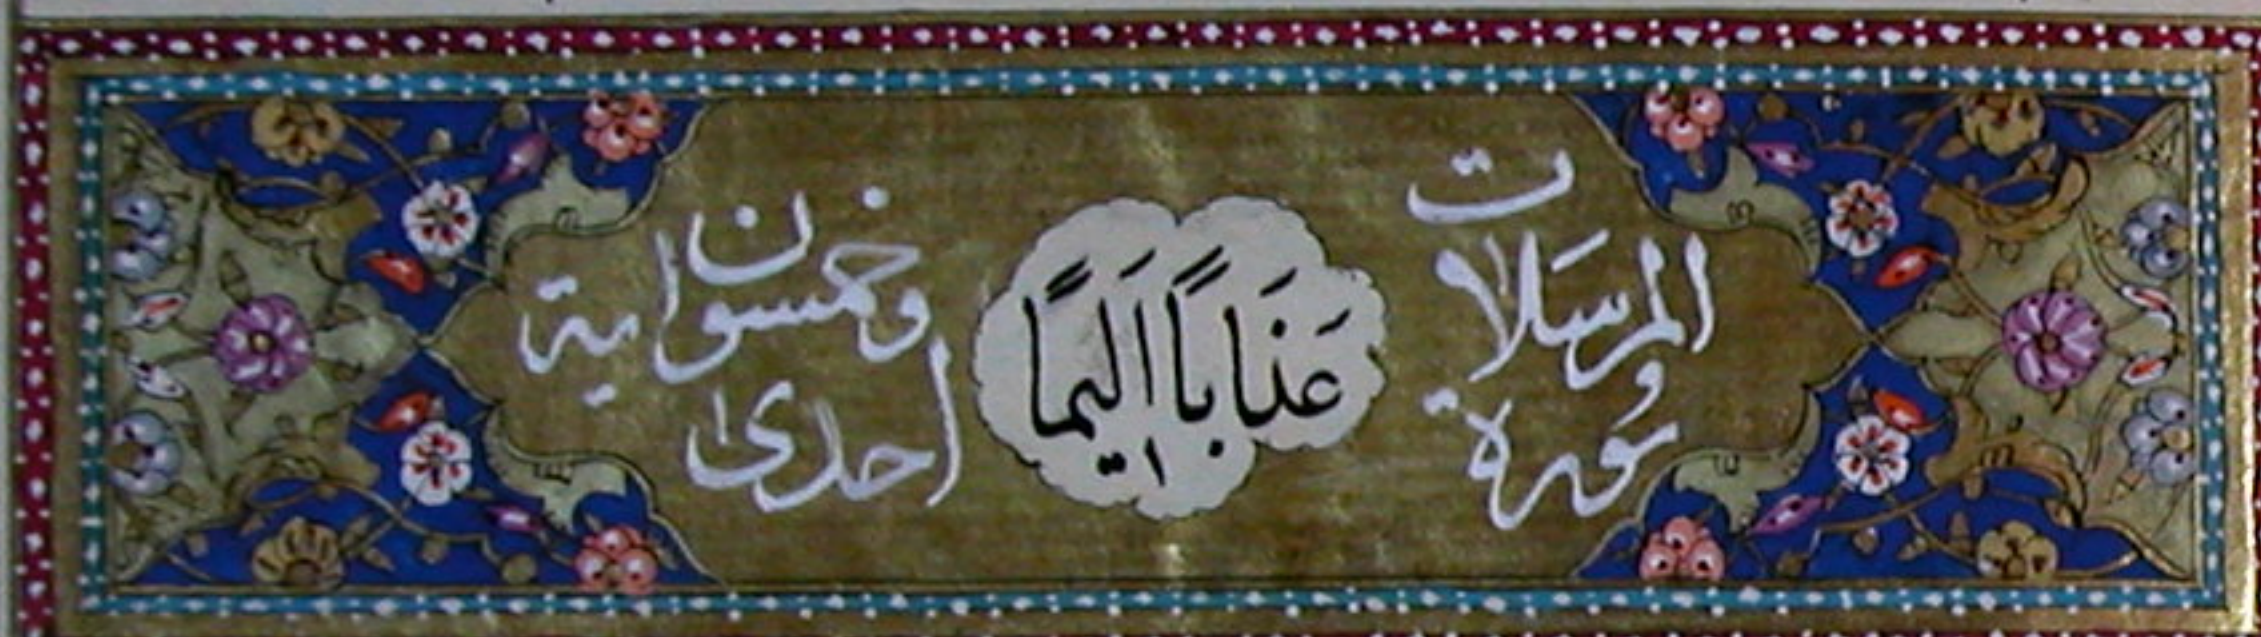 سورة
المرسلات
عَذَابًا اَلِيمًا
احدى
وخمسون اية